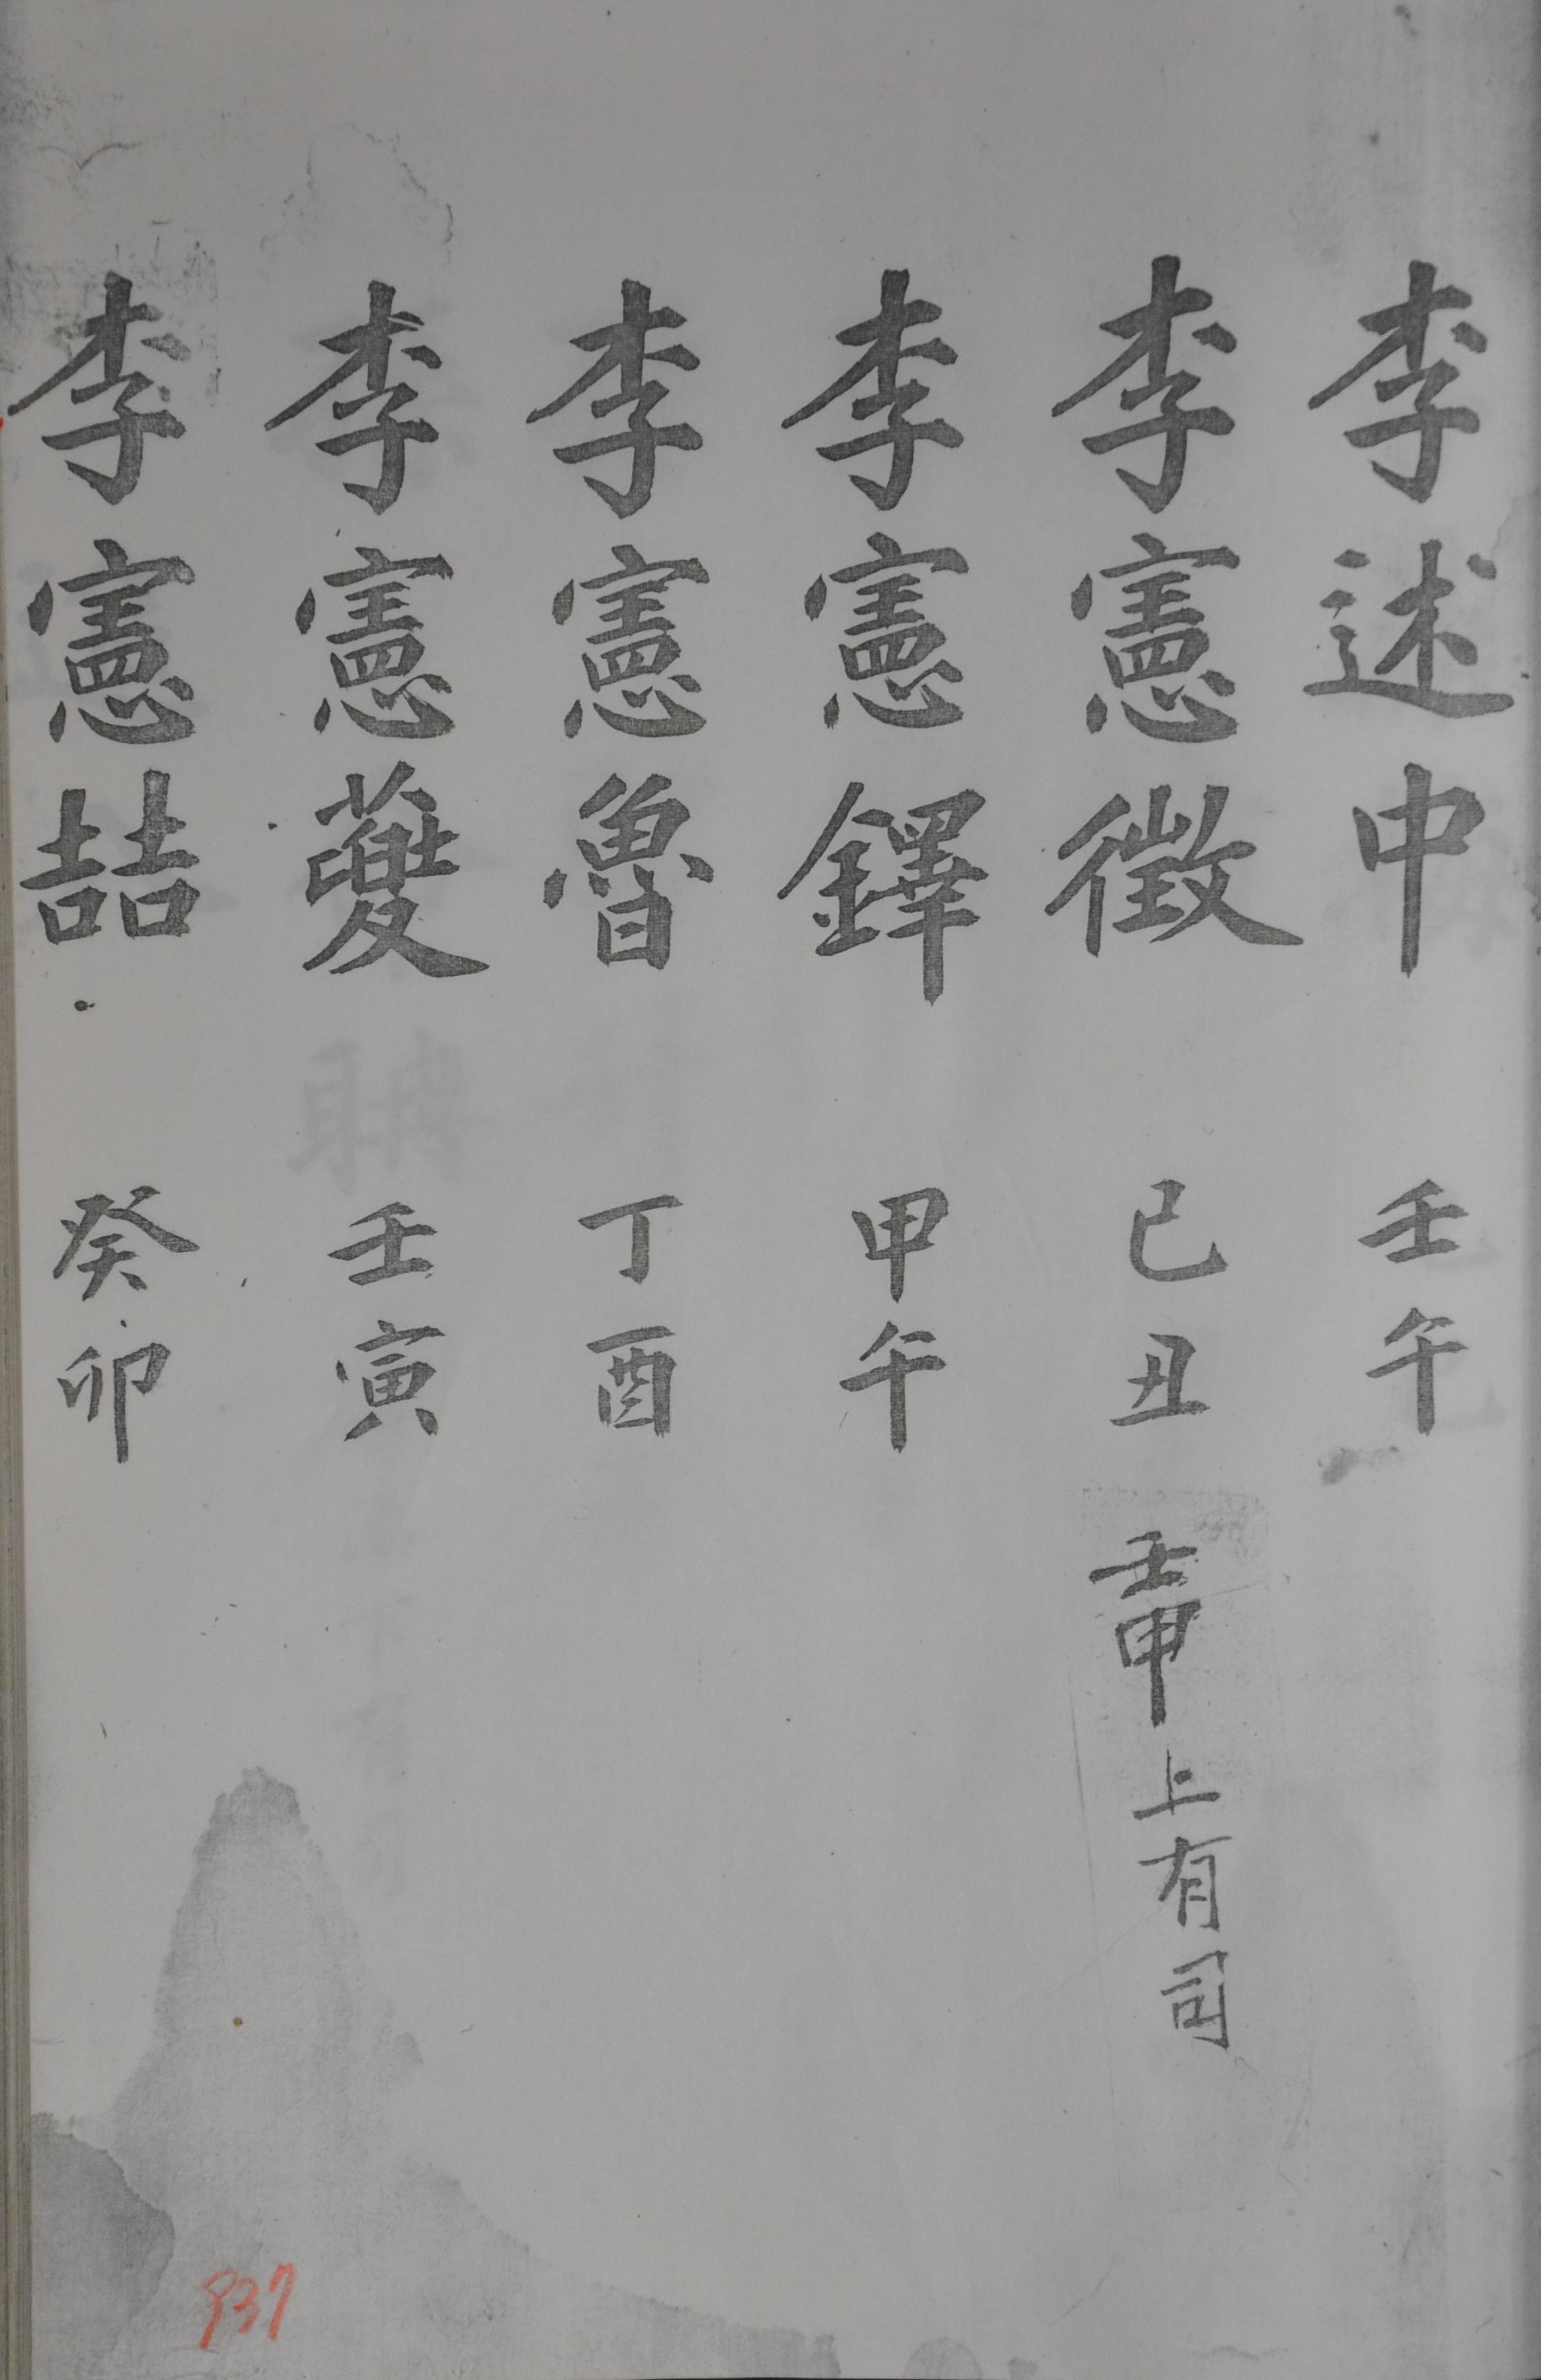 李述中 壬午
李憲徵 己丑 壬申 上有司
李憲鐸 甲午
李憲魯 丁酉
李憲夔 壬寅
李憲喆 癸卯
937